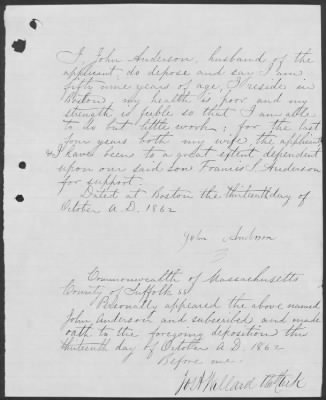 I, John Anderson, husband of the
applicant; do depose and say I am
fifty nine years of age, I reside in
Boston, my health is poor and my
strength is feeble so that I am able
to do but little work; for the last
four years both my wife, the applicant,
& I have been to a great extent dependent
upon our said son Francis S. Anderson
for support.
Dated at Boston the thirteenth day of
October A.D. 1862
John Anderson
Commonwealth of Massachusetts
County of Suffolk ss
Personally appeared the above named
John Anderson and subscribed and made
oath to the foregoing deposition this
thirteenth day of October A.D. 1862
Before me.
Jos. A. Willard Clerk